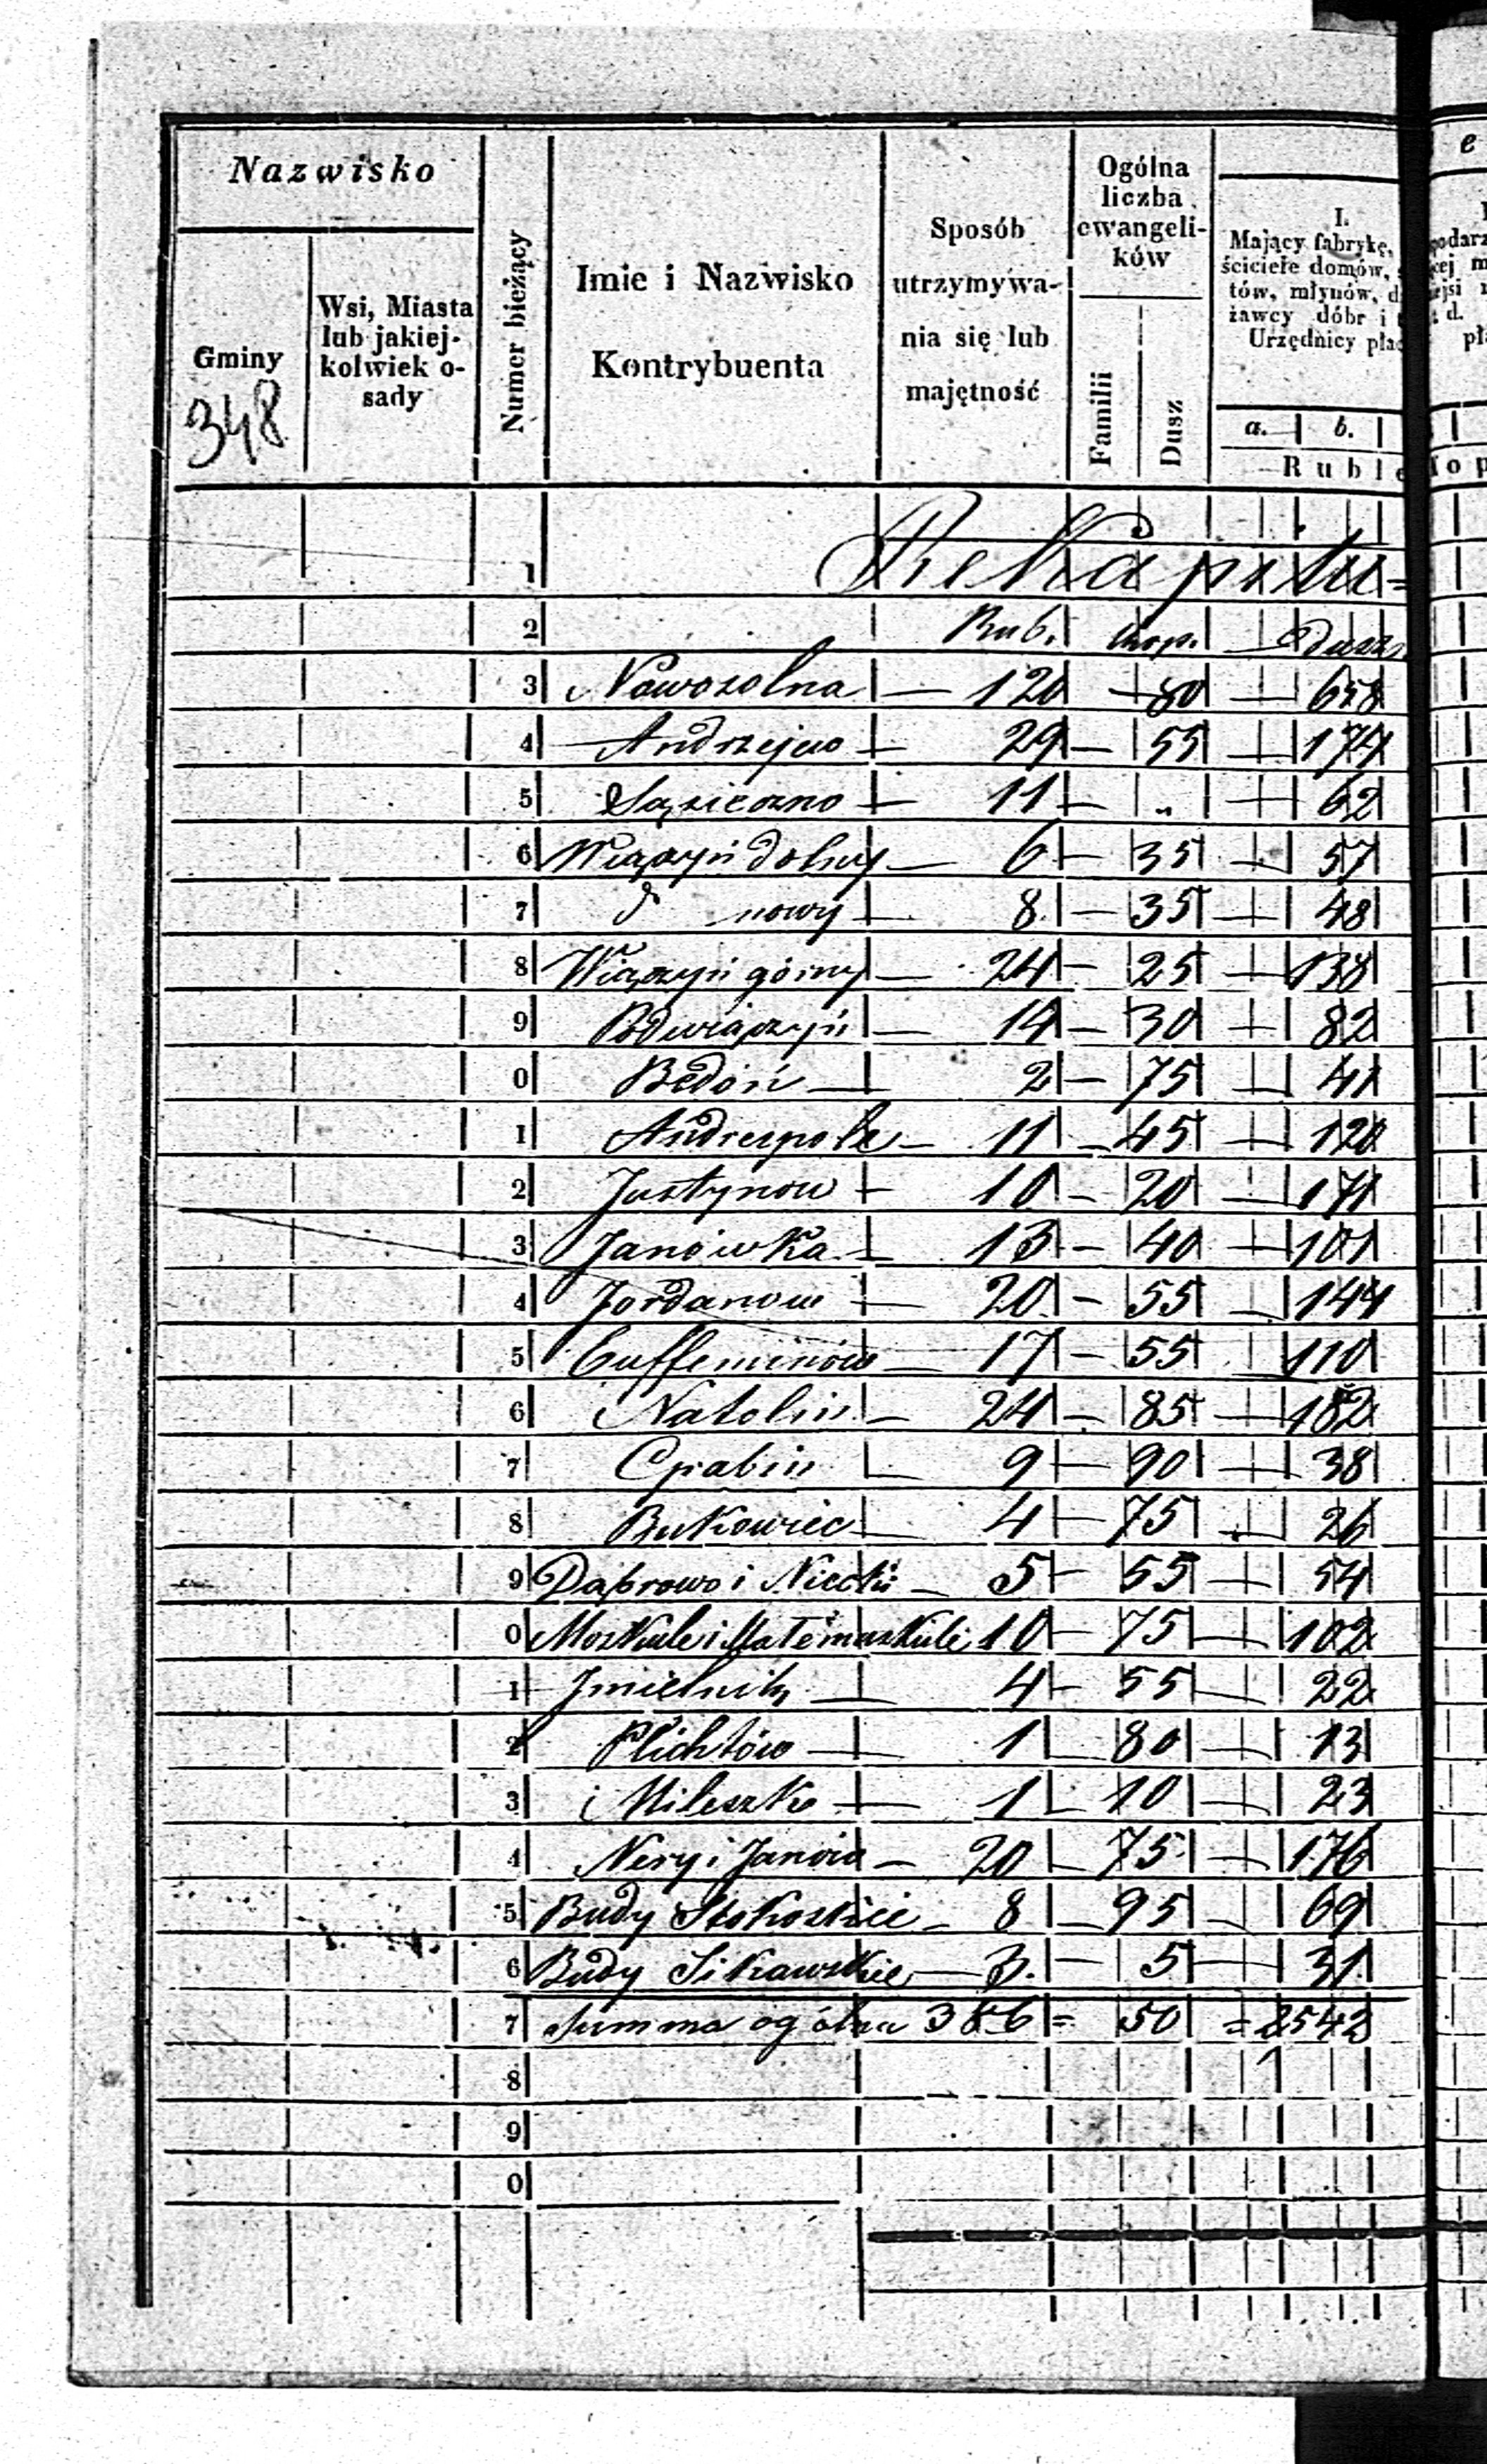 Nazwisko
Gminy
348
Wsi, Miasta
lub jakiej-
kolwiek o-
sady
Numer bieżący
Imie i Nazwisko
Kontrybuenta
Sposób
utrzymywa-
nia się lub
majętność
Ogólna
liczba
ewangeli-
ków
Familii
Dusz
I.
Mający fabrykę,
ściciele domów,
tów, młynów,
żawcy dóbr i
Urzędnicy
a. b.
Ruble
1 Rekapitu=
2 Rub. kop. Dusz
3 Nowosolna — 120 — 80 — 658
4 Andrzejew — 29 — 55 — 174
5 Sąsieczno — 11 — „ — 62
6 Wiączyń dolny — 6 — 35 — 57
7 d nowy — 8 — 35 — 48
8 Wiączyń górny — 24 — 25 — 138
9 Podwiączyń — 14 — 30 — 82
0 Bedoń — 2 — 75 — 41
1 Andrespole — 11 — 45 — 120
2 Justynow — 10 — 20 — 171
3 Janówka — 13 — 40 — 101
4 Jordanow — 20 — 55 — 144
5 Eufeminów — 17 — 55 110
6 Natolin — 24 — 85 — 182
7 9 — 90 — 38
8 Bukowiec — 4 — 75 — 26
9 Dąbrowo i Niecki — 5 — 55 — 54
0 Moskule i Małemoskule 10 — 75 — 102
1 Jmielnik — 4 — 55 — 22
2 Plichtów — 1 — 80 — 13
3 Mileszki — 1 — 10 — 23
4 Nery i Janów — 20 — 75 — 176
5 Budy Stokoskie — 8 — 95 — 69
6 Budy Sikawskie — 3. — 5 — 31
7 Summa ogólna 386 = 50 = 2542
8
9
0